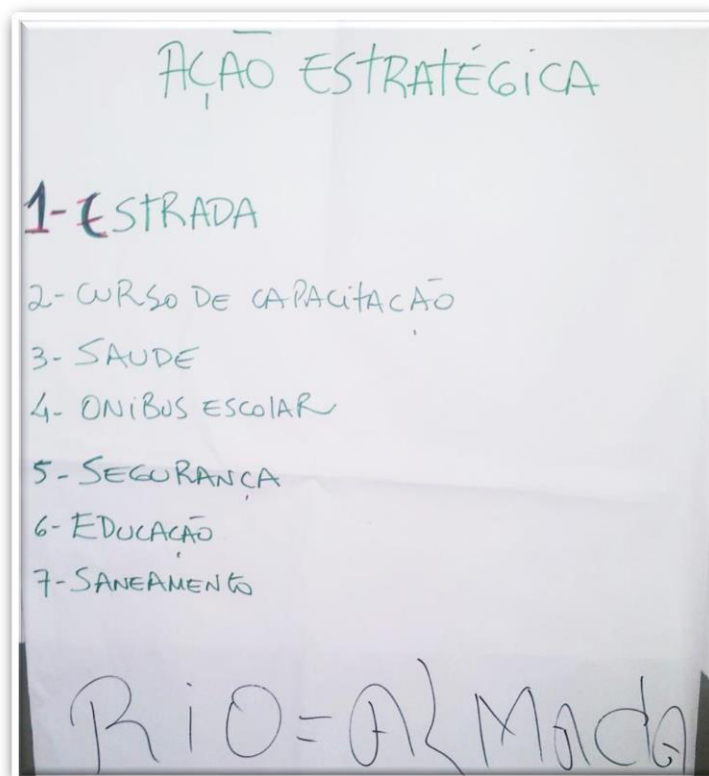 AÇÃO ESTRATÉGICA
1- ESTRADA
2- CURSO DE CAPACITAÇÃO
3- SAUDE
4- ONIBUS ESCOLAR
5- SEGURANÇA
6- EDUCAÇÃO
7- SANEAMENTO
RiO = AlMAdA